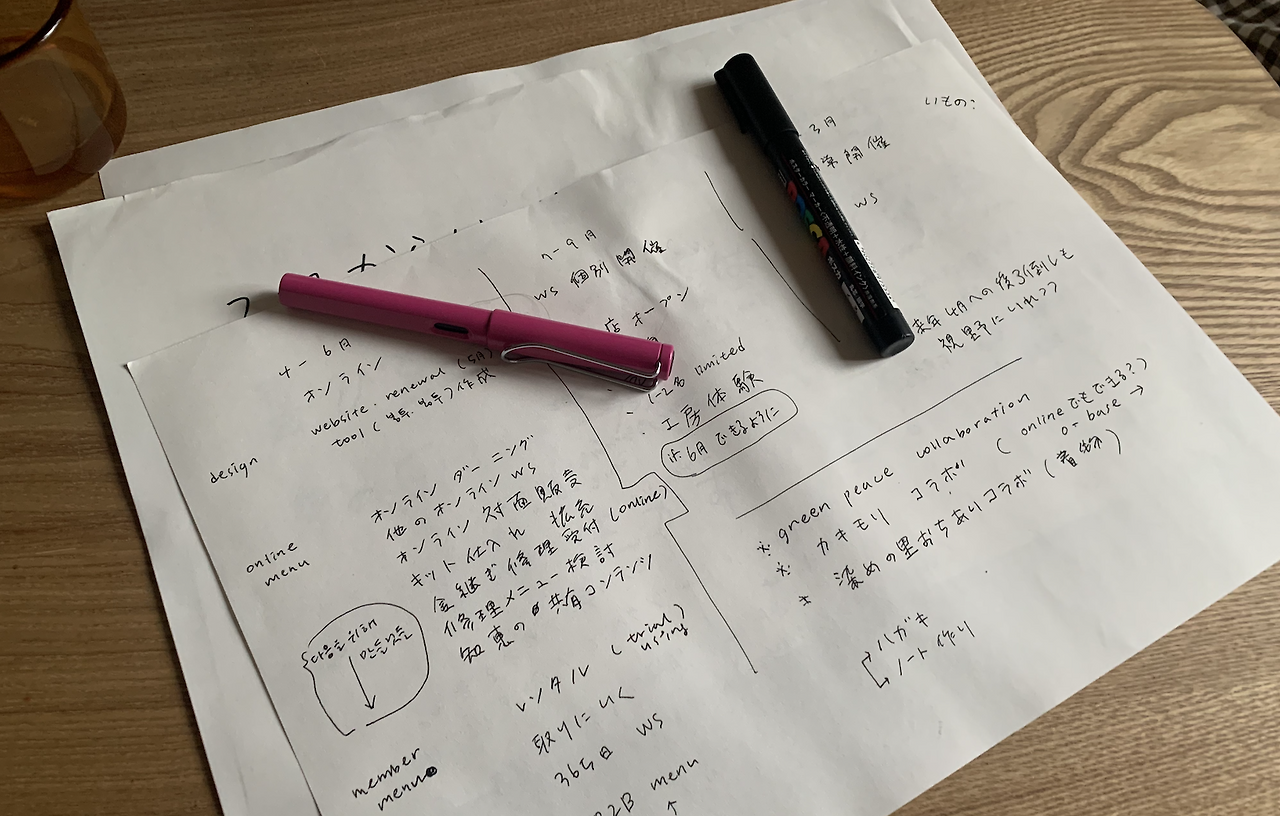 4 - 6月
オンライン
website . renewal (5月)
tool ( 작성
design
オンライン ダーニング
他のオンライン WS
オンライン 対面販売
キット仕入れ 拡充
金継ぎ修理受付 (online)
修理メニュー検討
知恵の共有コンテンツ
online
menu
다음을 위해
만든 것들
レンタル (trial
using)
取りにいく
365日 WS
B2B menu
↑
member
menu
7-9月
WS 個別開催
店オープン
1-2名 limited
工房体験
6月できるように
3月
開催
WS
いもの:
来年4月への後ろ倒しも
視野にいれつつ
※ green peace collaboration
※ カキモリ コラボ ( online でもできる?)
or base →
染めの里おちあいコラボ (着物)
ハガキ
ノート作り
POSCA
ポスカ